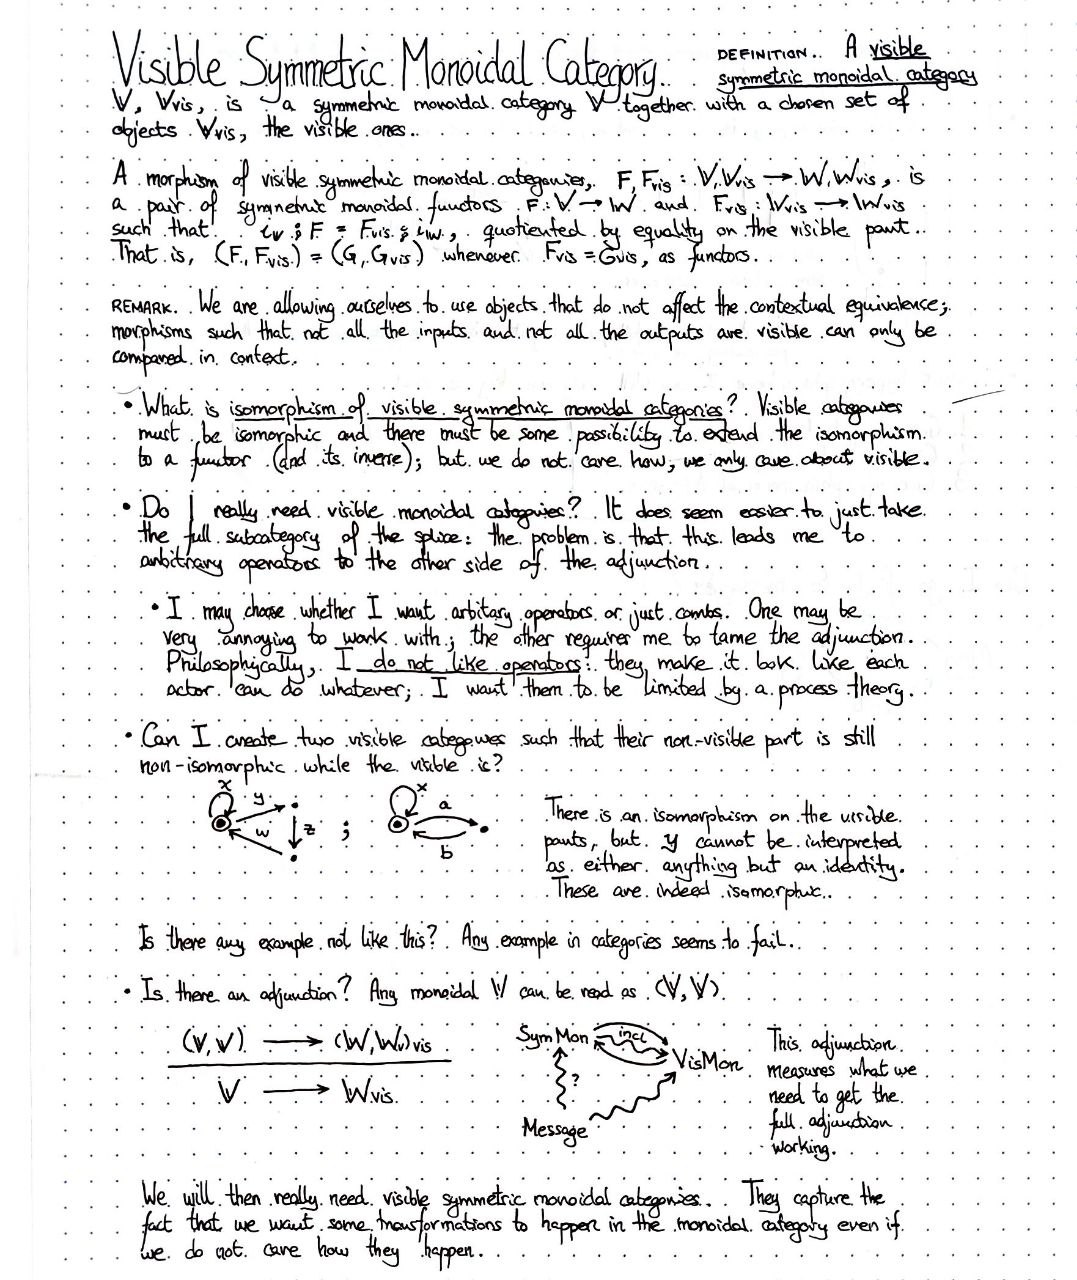 Visible Symmetric Monoidal Category.
DEFINITION.. A visible
symmetric monoidal category
V, Vvis, is a symmetric monoidal category V together with a chosen set of
objects Vvis, the visible ones..
A morphism of visible symmetric monoidal categories, F, Fvis : V, Vvis → W, Wvis, is
a pair of symmetric monoidal functors F : V → W and Fvis : Vvis → Wvis
such that iv ; F = Fvis ; iw, quotiented by equality on the visible part..
That is, (F, Fvis) = (G, Gvis) whenever Fvis = Gvis, as functors.
REMARK. We are allowing ourselves to use objects that do not affect the contextual equivalence;
morphisms such that not all the inputs and not all the outputs are visible can only be
compared in context.
• What is isomorphism of visible symmetric monoidal categories? Visible categories
must be isomorphic and there must be some possibility to extend the isomorphism
to a functor (and its inverse); but we do not care how, we only care about visible.
• Do I really need visible monoidal categories? It does seem easier to just take
the full subcategory of the splice: the problem is that this leads me to
arbitrary operators to the other side of the adjunction.
• I may choose whether I want arbitary operators or just combs. One may be
very annoying to work with; the other requires me to tame the adjunction.
Philosophically, I do not like operators: they make it look like each
actor can do whatever; I want them to be limited by a process theory.
• Can I create two visible categories such that their non-visible part is still
non-isomorphic while the visible is?
x y w z ; x a b
There is an isomorphism on the visible
parts, but y cannot be interpreted
as either anything but an identity.
These are indeed isomorphic..
Is there any example not like this? Any example in categories seems to fail..
• Is there an adjunction? Any monoidal V can be read as (V, V).
(V, V) → (W, Wv)vis
V → Wvis
SymMon incl VisMon
?
Message
This adjunction
measures what we
need to get the
full adjunction
working.
We will then really need visible symmetric monoidal categories. They capture the
fact that we want some transformations to happen in the monoidal category even if
we do not care how they happen.